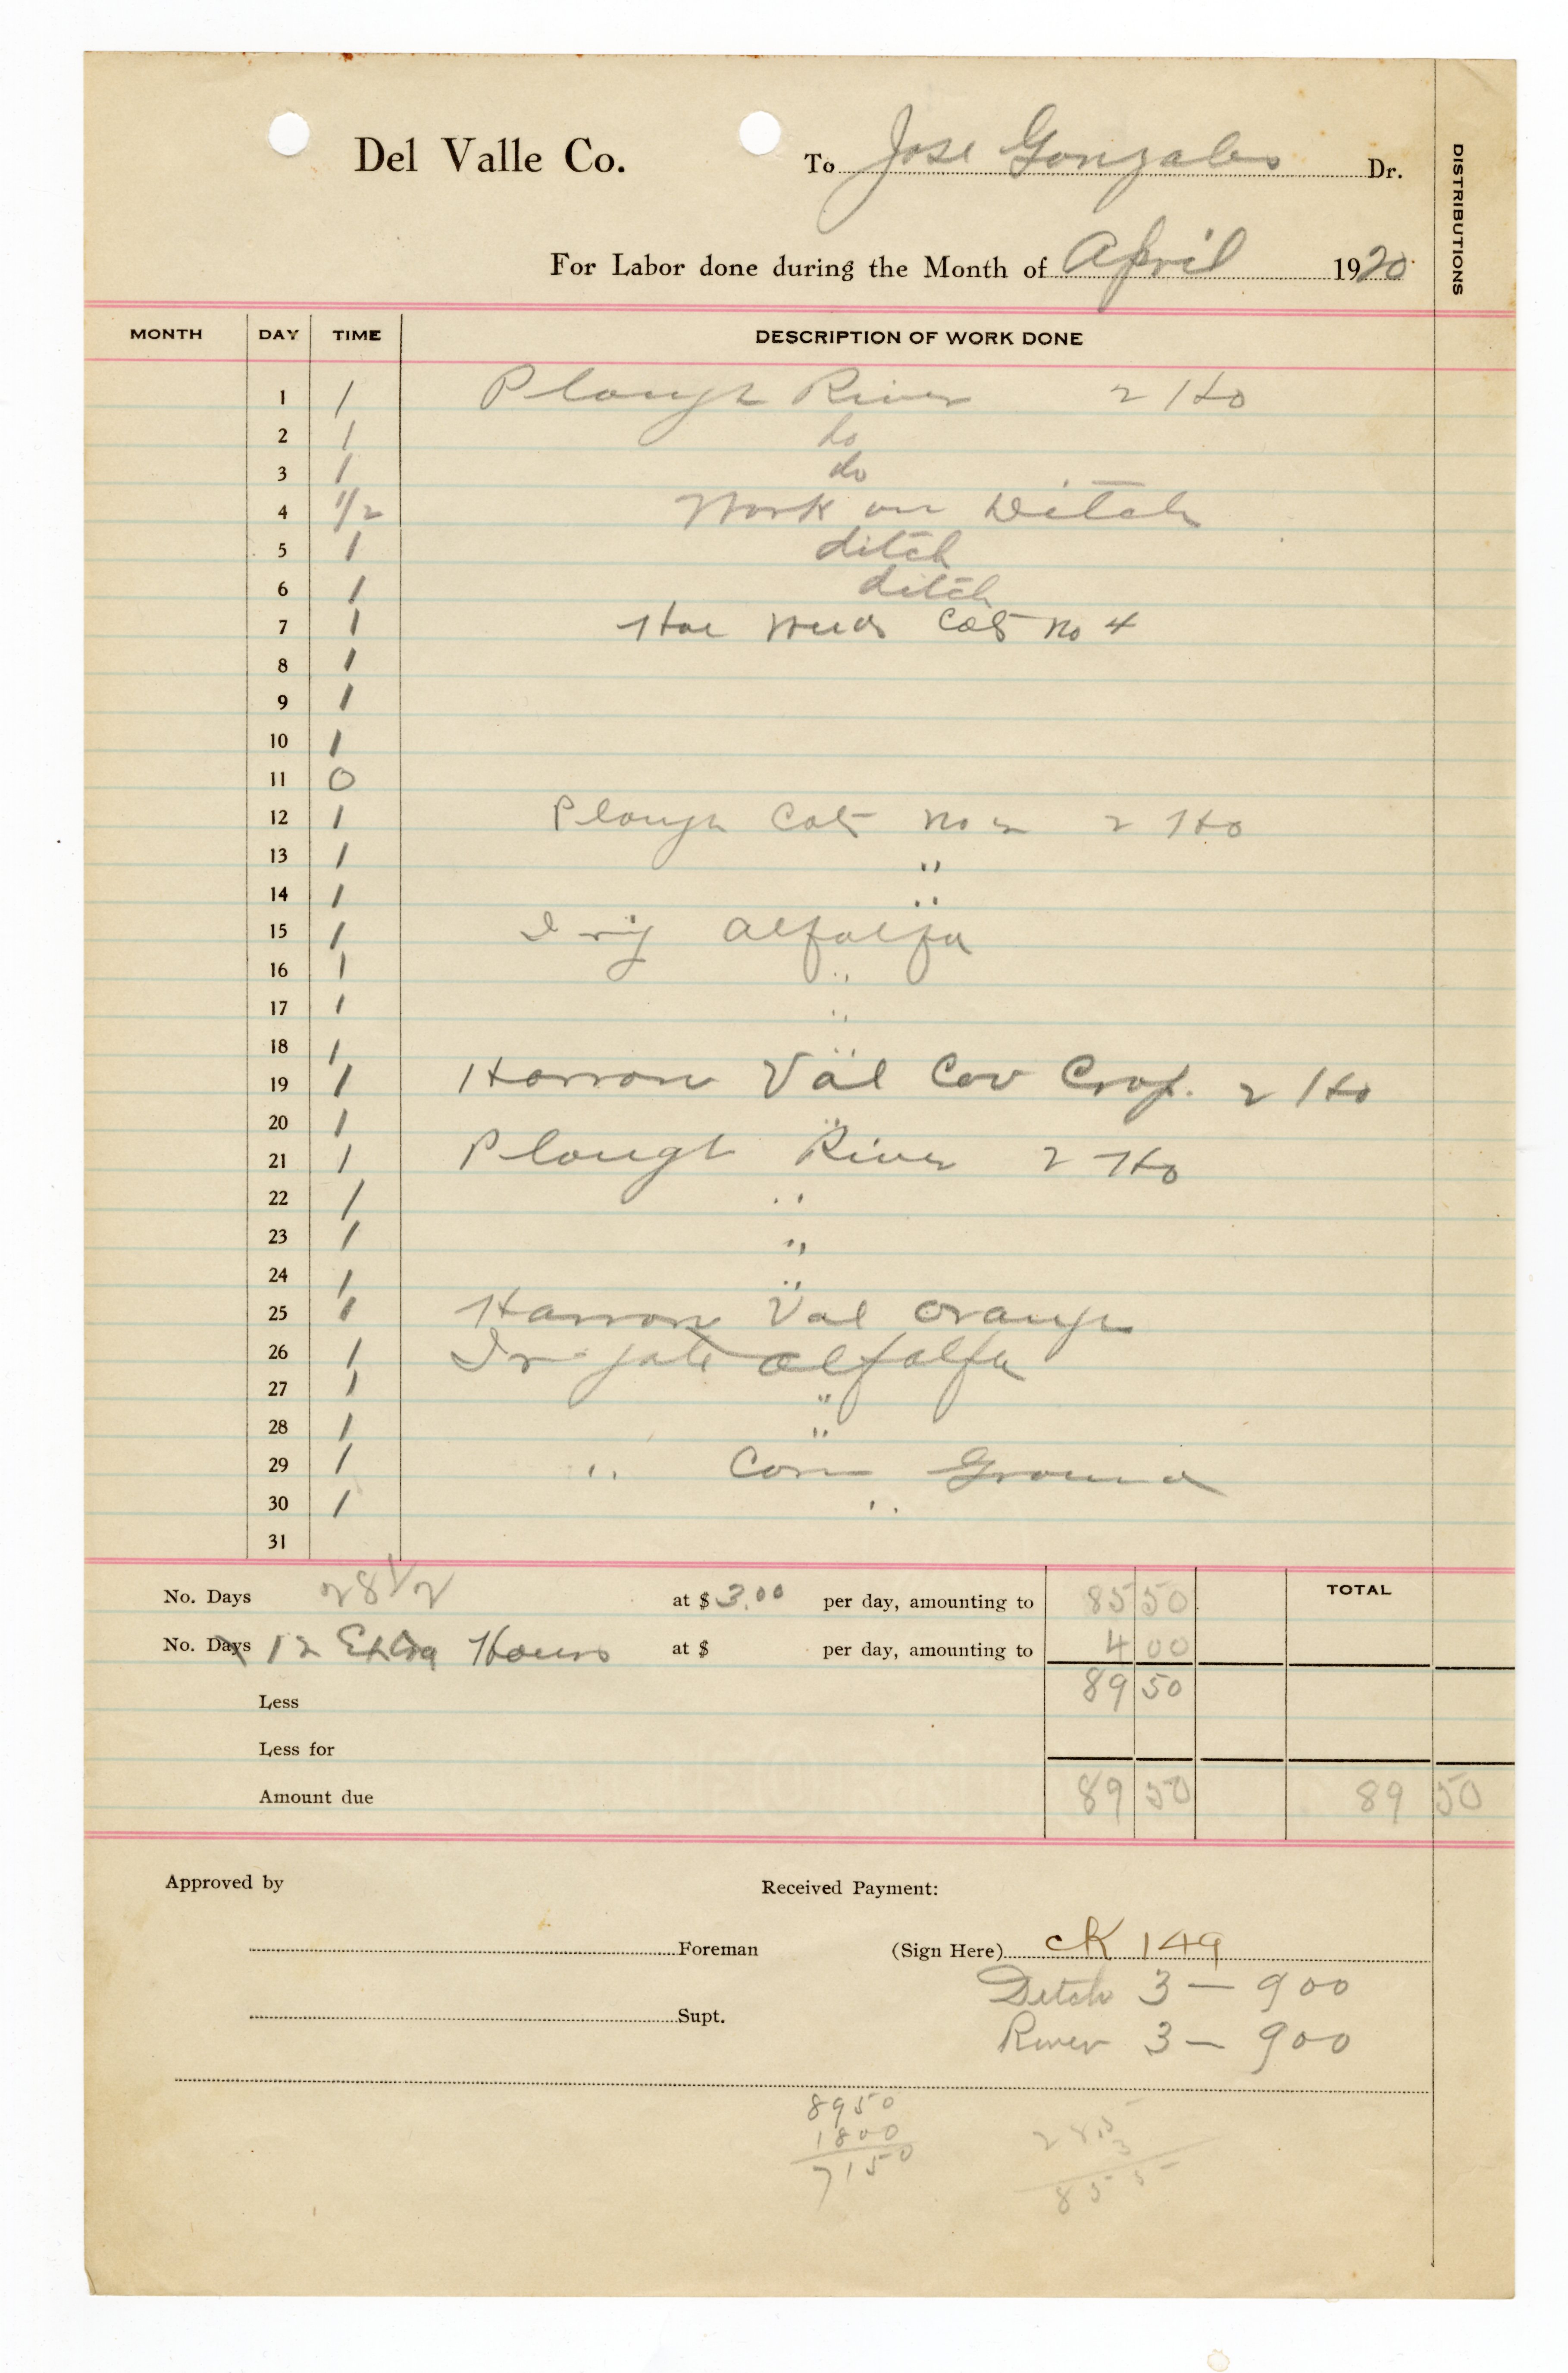 Del Valle Co. To Jose Gonzales Dr.
DISTRIBUTIONS
For Labor done during the Month of April 1920
MONTH DAY TIME DESCRIPTION OF WORK DONE
1 1 Plough River 2 Ho
2 1 do
3 1 do
4 1/2 Work on Ditch
5 1 ditch
6 1 ditch
7 1 Hoe Weeds Cot No 4
8 1
9 1
10 1
11 0
12 1 Plough Cot No 2 2 Ho
13 1 "
14 1 "
15 1 Irig Alfalfa
16 1 "
17 1 "
18 1 "
19 1 Harrow Val Cov Crop. 2 Ho
20 1 "
21 1 Plough River 2 Ho
22 1 "
23 1 "
24 1 "
25 1 Harrow Val Orange
26 1 Irigate alfalfa
27 1 "
28 1 "
29 1 " Corn Ground
30 1 "
31
No. Days 28 1/2 at $ 3.00 per day, amounting to 85 50 TOTAL
No. Days 12 Extra Hours at $ per day, amounting to 4 00
Less 89 50
Less for
Amount due 89 50 89 50
Approved by Received Payment:
Foreman (Sign Here) CK 149
Ditch 3 — 9 00
Supt.
River 3 — 9 00
8950
1800
7150
28.5
3
85 5